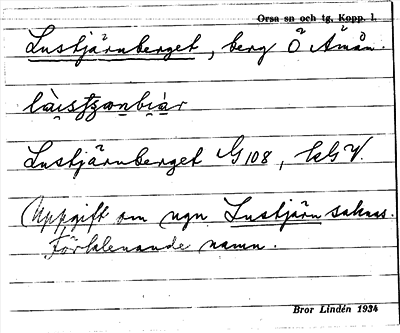 Orsa sn och tg, Kopp. l.
Lustjärnberget, berg Ö Ämån.
Lustjärnberget G 108, kk G V.
Uppgift om ngn Lustjärn saknas.
Förklenande namn.
Bror Lindén 1934